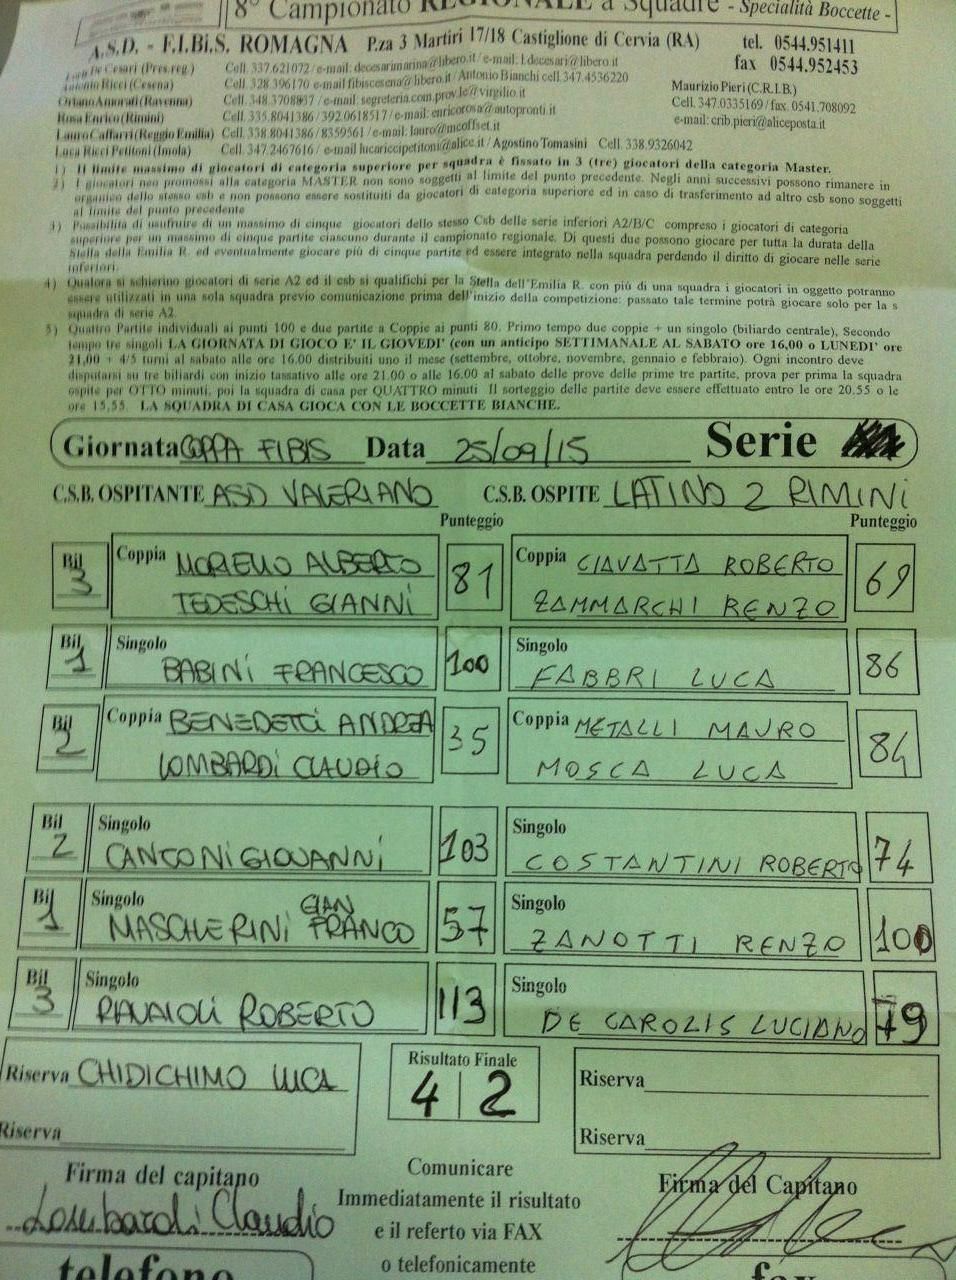 8° Campionato REGIONALE a Squadre - Specialità Boccette -
A.S.D. - F.I.Bi.S. ROMAGNA P.za 3 Martiri 17/18 Castiglione di Cervia (RA) tel. 0544.951411
fax 0544.952453
De Cesari (Pres.reg.) Cell. 337.621072 / e-mail: decesarimarina@libero.it / e-mail: l.decesari@libero.it
Ricci (Cesena) Cell. 328.396170 e-mail fibiscesena@libero.it / Antonio Bianchi cell.347.4536220
Maurizio Pieri (C.R.I.B.)
Amorati (Ravenna) Cell. 348.3708837 / e-mail: segreteria.com.prov.le@virgilio.it
Cell. 347.0335169 / fax. 0541.708092
Rosa Enrico (Rimini) Cell. 335.8041386 / 392.0618517 / e-mail: enricorosa@autopronti.it
e-mail: crib.pieri@aliceposta.it
Lauro Caffarri (Reggio Emilia) Cell. 338.8041386 / 8359561 / e-mail: lauro@mcoffset.it
Luca Ricci Petitoni (Imola) Cell. 347.2467616 / e-mail lucariccipetitoni@alice.it / Agostino Tomasini Cell. 338.9326042
1) Il limite massimo di giocatori di categoria superiore per squadra è fissato in 3 (tre) giocatori della categoria Master.
2) I giocatori neo promossi alla categoria MASTER non sono soggetti al limite del punto precedente. Negli anni successivi possono rimanere in
organico dello stesso csb e non possono essere sostituiti da giocatori di categoria superiore ed in caso di trasferimento ad altro csb sono soggetti
al limite del punto precedente
3) Possibilità di usufruire di un massimo di cinque giocatori dello stesso Csb delle serie inferiori A2/B/C compreso i giocatori di categoria
superiore per un massimo di cinque partite ciascuno durante il campionato regionale. Di questi due possono giocare per tutta la durata della
Stella della Emilia R. ed eventualmente giocare più di cinque partite ed essere integrato nella squadra perdendo il diritto di giocare nelle serie
inferiori.
4) Qualora si schierino giocatori di serie A2 ed il csb si qualifichi per la Stella dell'Emilia R. con più di una squadra i giocatori in oggetto potranno
essere utilizzati in una sola squadra previo comunicazione prima dell'inizio della competizione: passato tale termine potrà giocare solo per la s
squadra di serie A2.
5) Quattro Partite individuali ai punti 100 e due partite a Coppie ai punti 80. Primo tempo due coppie + un singolo (biliardo centrale), Secondo
tempo tre singoli LA GIORNATA DI GIOCO E' IL GIOVEDI' (con un anticipo SETTIMANALE AL SABATO ore 16,00 o LUNEDI' ore
21,00 + 4/5 turni al sabato alle ore 16.00 distribuiti uno il mese (settembre, ottobre, novembre, gennaio e febbraio). Ogni incontro deve
disputarsi su tre biliardi con inizio tassativo alle ore 21.00 o alle 16.00 al sabato delle prove delle prime tre partite, prova per prima la squadra
ospite per OTTO minuti, poi la squadra di casa per QUATTRO minuti Il sorteggio delle partite deve essere effettuato entro le ore 20.55 o le
ore 15,55. LA SQUADRA DI CASA GIOCA CON LE BOCCETTE BIANCHE.
Giornata COPPA FIBIS Data 25/09/15 Serie
C.S.B. OSPITANTE ASD VALERIANO C.S.B. OSPITE LATINO 2 RIMINI
Punteggio Punteggio
Bil 3 Coppia MORELLO ALBERTO 81 Coppia CIAVATTA ROBERTO 69
TEDESCHI GIANNI ZAMMARCHI RENZO
Bil 1 Singolo 100 Singolo 86
BABINI FRANCESCO FABBRI LUCA
Bil 2 Coppia BENEDETTI ANDREA 35 Coppia METALLI MAURO 84
LOMBARDI CLAUDIO MOSCA LUCA
Bil 2 Singolo 103 Singolo 74
CANTONI GIOVANNI COSTANTINI ROBERTO
Bil 1 Singolo GIAN 57 Singolo 100
MASCHERINI FRANCO ZANOTTI RENZO
Bil 3 Singolo 113 Singolo 79
RAVAIOLI ROBERTO DE CAROLIS LUCIANO
Riserva CHIDICHIMO LUCA Risultato Finale Riserva
4 2
Riserva Riserva
Firma del capitano Comunicare Firma del Capitano
Lombardi Claudio Immediatamente il risultato
e il referto via FAX
telefono o telefonicamente fax